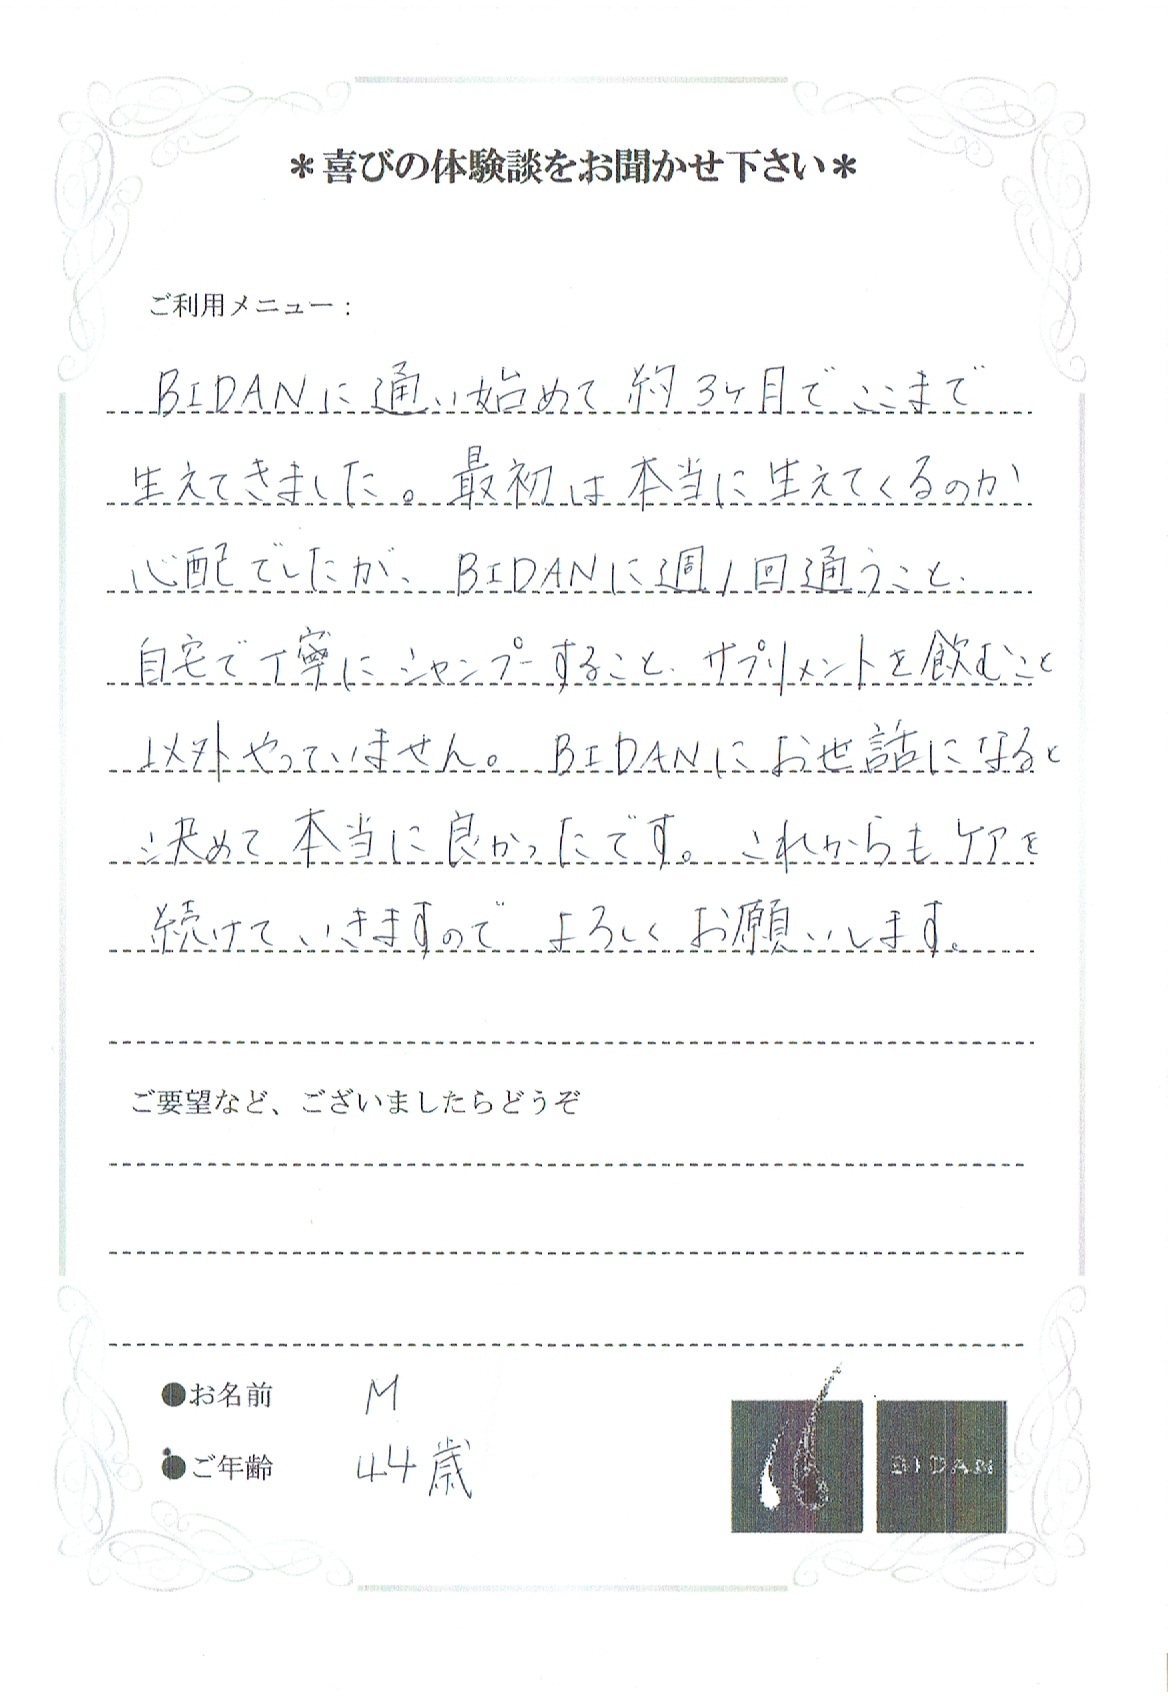 ＊喜びの体験談をお聞かせ下さい＊
ご利用メニュー：
BIDANに通い始めて約3ヶ月でここまで
生えてきました。最初は本当に生えてくるのか
心配でしたが、BIDANに週1回通うこと、
自宅で丁寧にシャンプーすること、サプリメントを飲むこと
以外やっていません。BIDANにお世話になると
決めて本当に良かったです。これからもケアを
続けていきますのでよろしくお願いします。
ご要望など、ございましたらどうぞ
●お名前 M
●ご年齢 44歳
BIDAN